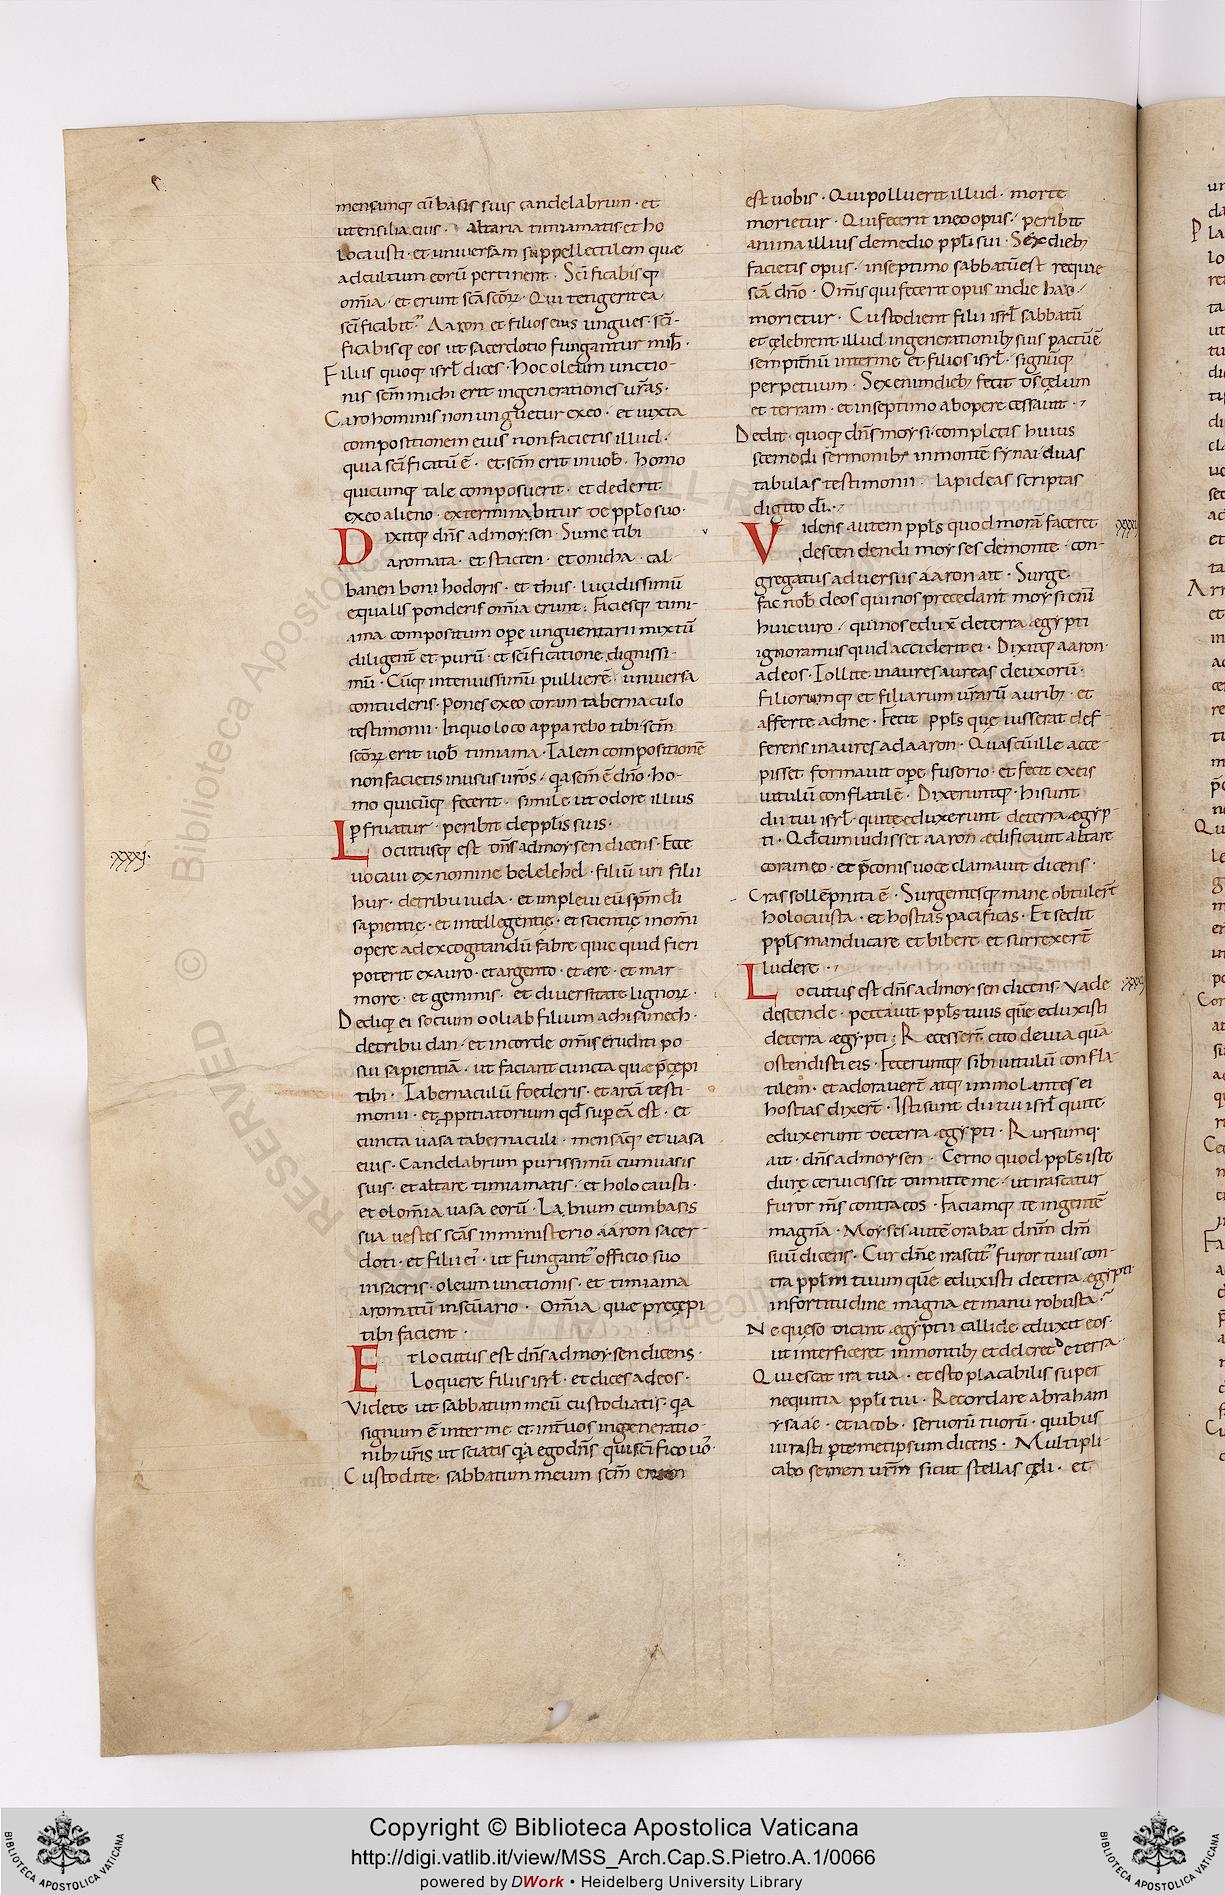 mensamq; cū basis suis candelabrum · et
utensilia eius · altaria timiamatis et ho
locausti · et universam suppellectilem quæ
ad cultum eorū pertinent · Sc̄ificabisq;
om̄ia · et erunt sc̄a sc̄oꝝ · Qui tetigerit ea
sc̄ificabit᷑ · Aaron et filios eius ungues sc̄i-
ficabisq; eos ut sacerdotio fungantur mih̄ ·
Filiis quoq; isrl̄ dices · Hoc oleum unctio-
nis sc̄m michi erit in generationes vr̄as ·
Caro hominis non unguetur ex eo · et iuxta
compositionem eius non facietis illud ·
quia sc̄ificatū ē · et sc̄m erit in uob̄ · Homo
quicumq; tale composuerit · et dederit
ex eo alieno · exterminabitur de pp̄lo suo ·
Dixitq; dn̄s ad moysen · Sume tibi
aromata · et stacten · et onicha · cal
banen boni hodoris · et thus lucidissimū
equalis ponderis om̄ia erunt ; faciesq; timi-
ama compositum ope unguentarii mixtū
diligent̄ et purū · et sc̄ificatione dignissi-
mū · Cūq; in tenuissimū pulverē · universa
contuderis · Pones ex eo coram tabernaculo
testimonii · In quo loco apparebo tibi · sc̄m
sc̄oꝝ erit uob̄ timiama · Talem compositionē
non facietis in usus vr̄os · q̄a sc̄m ē dn̄o · ho-
mo quicūq; fecerit · simile ut odore illius
pfruatur · peribit de pp̄lis suis ·
Locutusq; est dn̄s ad moysen dicens · Ecce
xxxj ·
vocavi ex nomine belelehel · filiū uri filii
hur · de tribu iuda · et implevi eū sp̄m dī
sapientię · et intellegentię · et scientię in om̄i
opere ad excogitandū fabre quicquid fieri
poterit ex auro · et argento · et ære · et mar
more · et gemmis · et diversitate lignoꝝ ·
Dediq; ei socium ooliab filium achisamech ·
de tribu dan · et in corde om̄is eruditi po
sui sapientiā · ut faciant cuncta quæ p̄cepi
tibi · Tabernaculū foederis · et arcā testi-
monii · et ppitiatorium qd̄ sup eā est · et
cuncta vasa tabernaculi · mensāq; et vasa
eius · Candelabrum purissimū cum vasis
suis · et altare timiamatis · et holocausti ·
et olom̄ia vasa eorū · Labium cum basi
sua vestes sc̄as in ministerio aaron sacer-
doti · et filii ei᷒ · ut fungant᷑ officio suo
in sacris · oleum unctionis · et timiama
aromatū in sc̄uario · Om̄ia quæ precepi
tibi facient ·
Et locutus est dn̄s ad moysen dicens ·
Loquere filiis isrl̄ · et dices ad eos ·
Videte ut sabbatum meū custodiatis · q̄a
signum ē inter me et int̄ vos in generatio-
nib; vr̄is ut sciatis q̄a ego dn̄s qui sc̄ifico vo᷒ ·
Custodite · sabbatum meum sc̄m enim
est vobis · Qui polluerit illud · morte
morietur · Qui fecerit in eo opus · peribit
anima illius de medio pp̄li sui · Sex dieb;
facietis opus · in septimo sabbatū est requie
sc̄a dn̄o · Om̄is qui fecerit opus in die hac ·
morietur · Custodient filii isrl̄ sabbatū
et celebrent illud in generationib; suis pactū ē
sempit̄nū inter me et filios isrl̄ · signūq;
perpetuum · Sex enim dieb; fecit ds̄ celum
et terram · et in septimo ab opere cessavit ·
Dedit · quoq; dn̄s moysi · completis huius
scemodi sermonib; in monte synai duas
tabulas testimonii · lapideas scriptas
digito dī ·
Videns autem pp̄ls quod morā faceret
descendendi moyses de monte · con-
gregatus adversus aaron ait · Surge
fac nob̄ deos qui nos precedant moysi enī
huic viro · qui nos edux̄ de terra ægypti
ignoramus quid acciderit ei · Dixitq; aaron ·
ad eos · Tollite inaures aureas de uxorū ·
filiorumq; et filiarum vr̄arū aurib; · et
afferte ad me · Fecit pp̄ls quę iusserat def-
ferens inaures ad aaron · Quas cū ille acce-
pisset formavit ope fusorio · et fecit ex eis
vitulū conflatilē · Dixeruntq; · hi sunt
dii tui isrl̄ · qui te eduxerunt de terra ægyp
ti · Qd̄ cum vidisset aaron ædificavit altare
coram eo · et p̄conis voce clamavit dicens ·
Cras sollēpnita ē · Surgentesq; mane obtuler̄t
holocausta · et hostias pacificas · Et sedit
pp̄ls manducare et bibere et surrexer̄t
ludere ·
Locutus est dn̄s ad moysen dicens · vade
descende · peccavit pp̄ls tuus quē eduxisti
de terra ægypti ; Recesser̄t cito de via quā
ostendisti eis · Feceruntq; sibi vitulū confla
tilem · et adoraver̄t atq; immolantes ei
hostias dixer̄t · Isti sunt dii tui isrl̄ qui te
eduxerunt de terra ægypti · Rursumq;
ait · dn̄s ad moysen · Cerno quod pp̄ls iste
durę cervicis sit dimitte me · ut irascatur
furor m̄s contra eos · Faciamq; te in gentē
magnā · Moyses autē orabat dn̄m dm̄
suū dicens · Cur dn̄e irascit᷑ furor tuus con-
tra pp̄lm tuum quē eduxisti de terra ægypti
in fortitudine magna et manu robusta ·
Ne queso dicant ægyptii callide eduxit eos ·
ut interficeret in montib; et deleret de terra ·
Quiescat ira tua · et esto placabilis super
nequitia pp̄li tui · Recordare abraham
ysaac · et iacob · servorū tuorū · quibus
iurasti p temetipsum dicens · Multipli-
cabo semen vr̄m sicut stellas cęli · et
Copyright © Biblioteca Apostolica Vaticana
http://digi.vatlib.it/view/MSS_Arch.Cap.S.Pietro.A.1/0066
powered by DWork • Heidelberg University Library